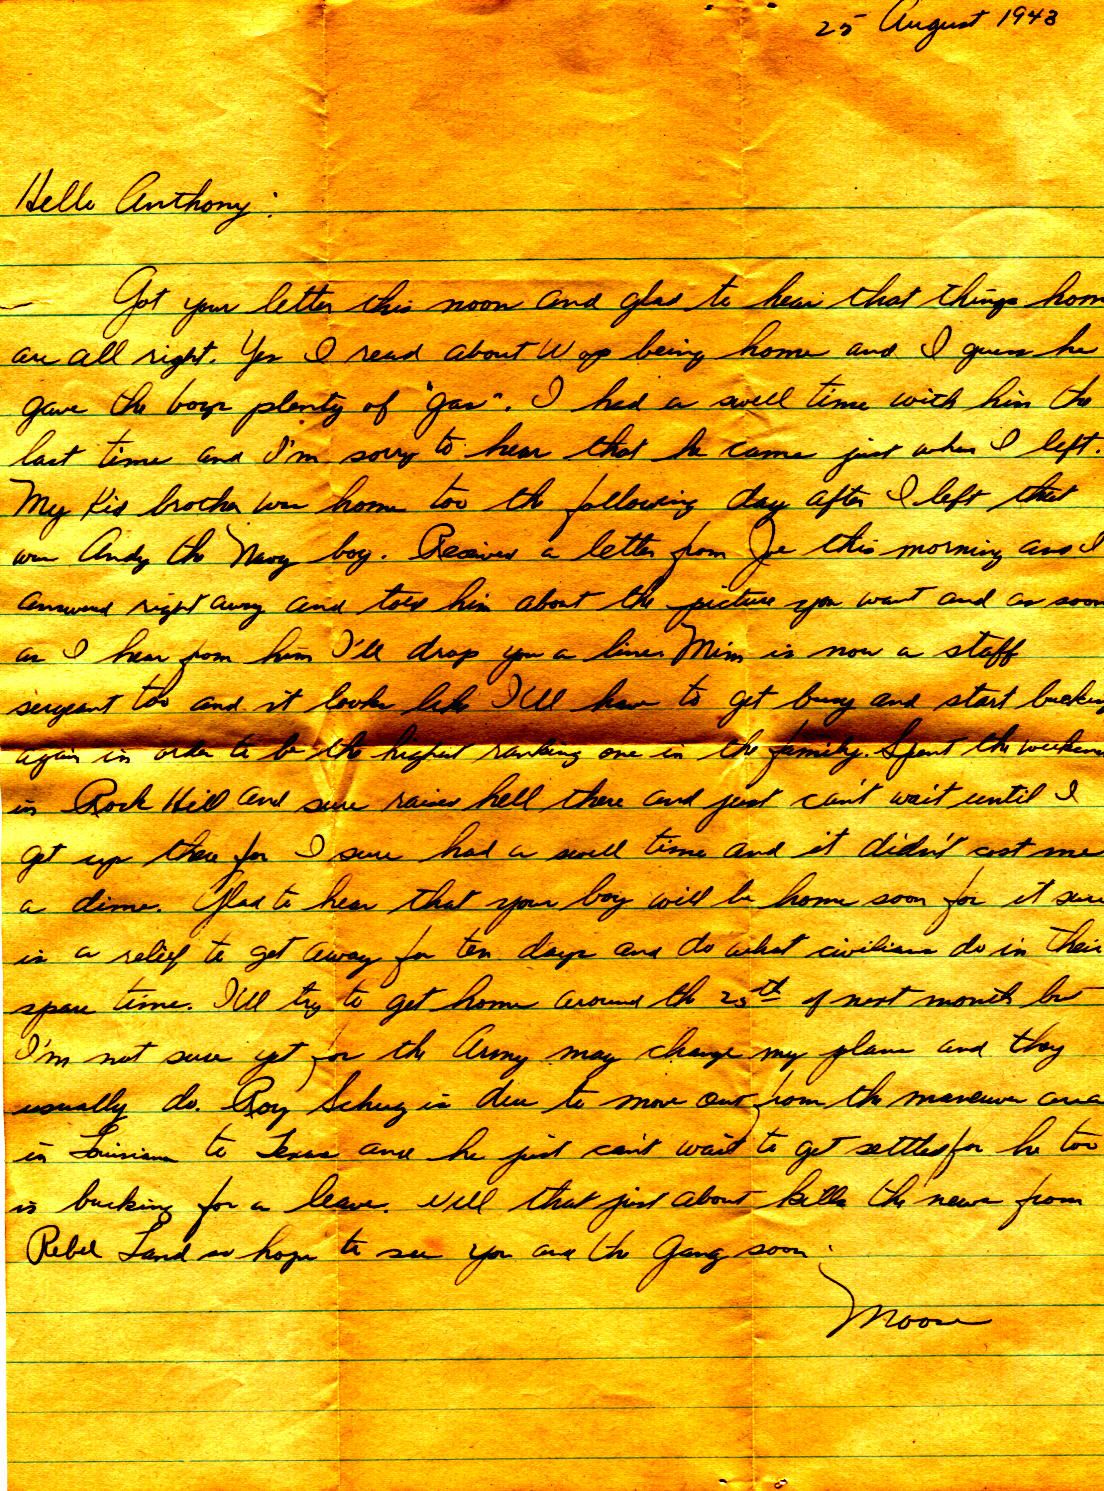 25 August 1943
Hello Anthony:
Got your letter this noon and glad to hear that things home
are all right. Yes I read about Wop being home and I guess he
gave the boys plenty of "gas". I had a swell time with him the
last time and I'm sorry to hear that he came just when I left.
My Kid brother was home too the following day after I left that
was Andy the Navy boy. Received a letter from Joe this morning and I
answered right away and told him about the picture you want and as soon
as I hear from him I'll drop you a line. Mim is now a staff
sergeant too and it looks like I'll have to get busy and start bucking
again in order to be the highest ranking one in the family. Spent the weekend
in Rock Hill and sure raised hell there and just can't wait until I
get up there for I sure had a swell time and it didn't cost me
a dime. Glad to hear that your boy will be home soon for it sure
is a relief to get away for ten days and do what civilians do in their
spare time. I'll try to get home around the 25th of next month but
I'm not sure yet for the Army may change my plans and they
usually do. Roy is due to move out from the maneuver area
in Louisiana to Texas and he just can't wait to get settled for he too
is bucking for a leave. Well that just about kills the news from
Rebel Land so hope to see you and the Gang soon.
Moose